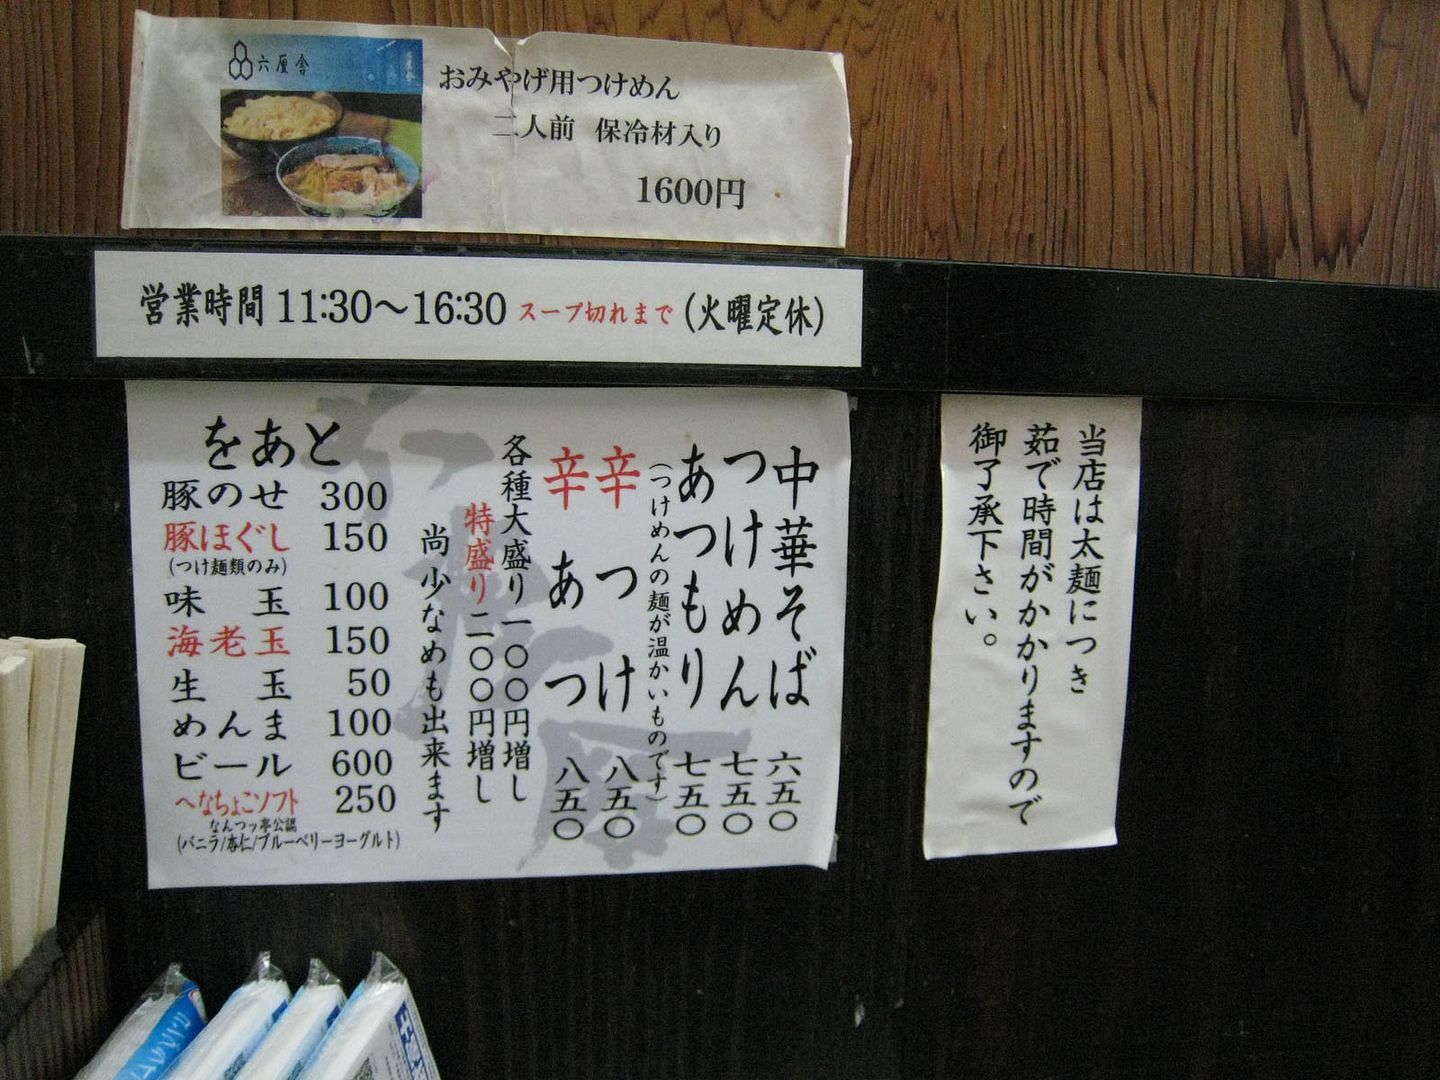 六厘舎
おみやげ用つけめん
二人前 保冷材入り
1600円
営業時間 11:30～16:30 スープ切れまで (火曜定休)
中華そば 六五〇
つけめん 七五〇
あつもり 七五〇
(つけめんの麺が温かいものです)
辛つけ 八五〇
辛あつ 八五〇
各種大盛り一〇〇円増し
特盛り二〇〇円増し
尚 少なめも出来ます
をあと
豚のせ 300
豚ほぐし 150
(つけ麺類のみ)
味玉 100
海老玉 150
生玉 50
めんま 100
ビール 600
へなちょこソフト 250
なんつッ亭公認
(バニラ/杏仁/ブルーベリーヨーグルト)
当店は太麺につき
茹で時間がかかりますので
御了承下さい。